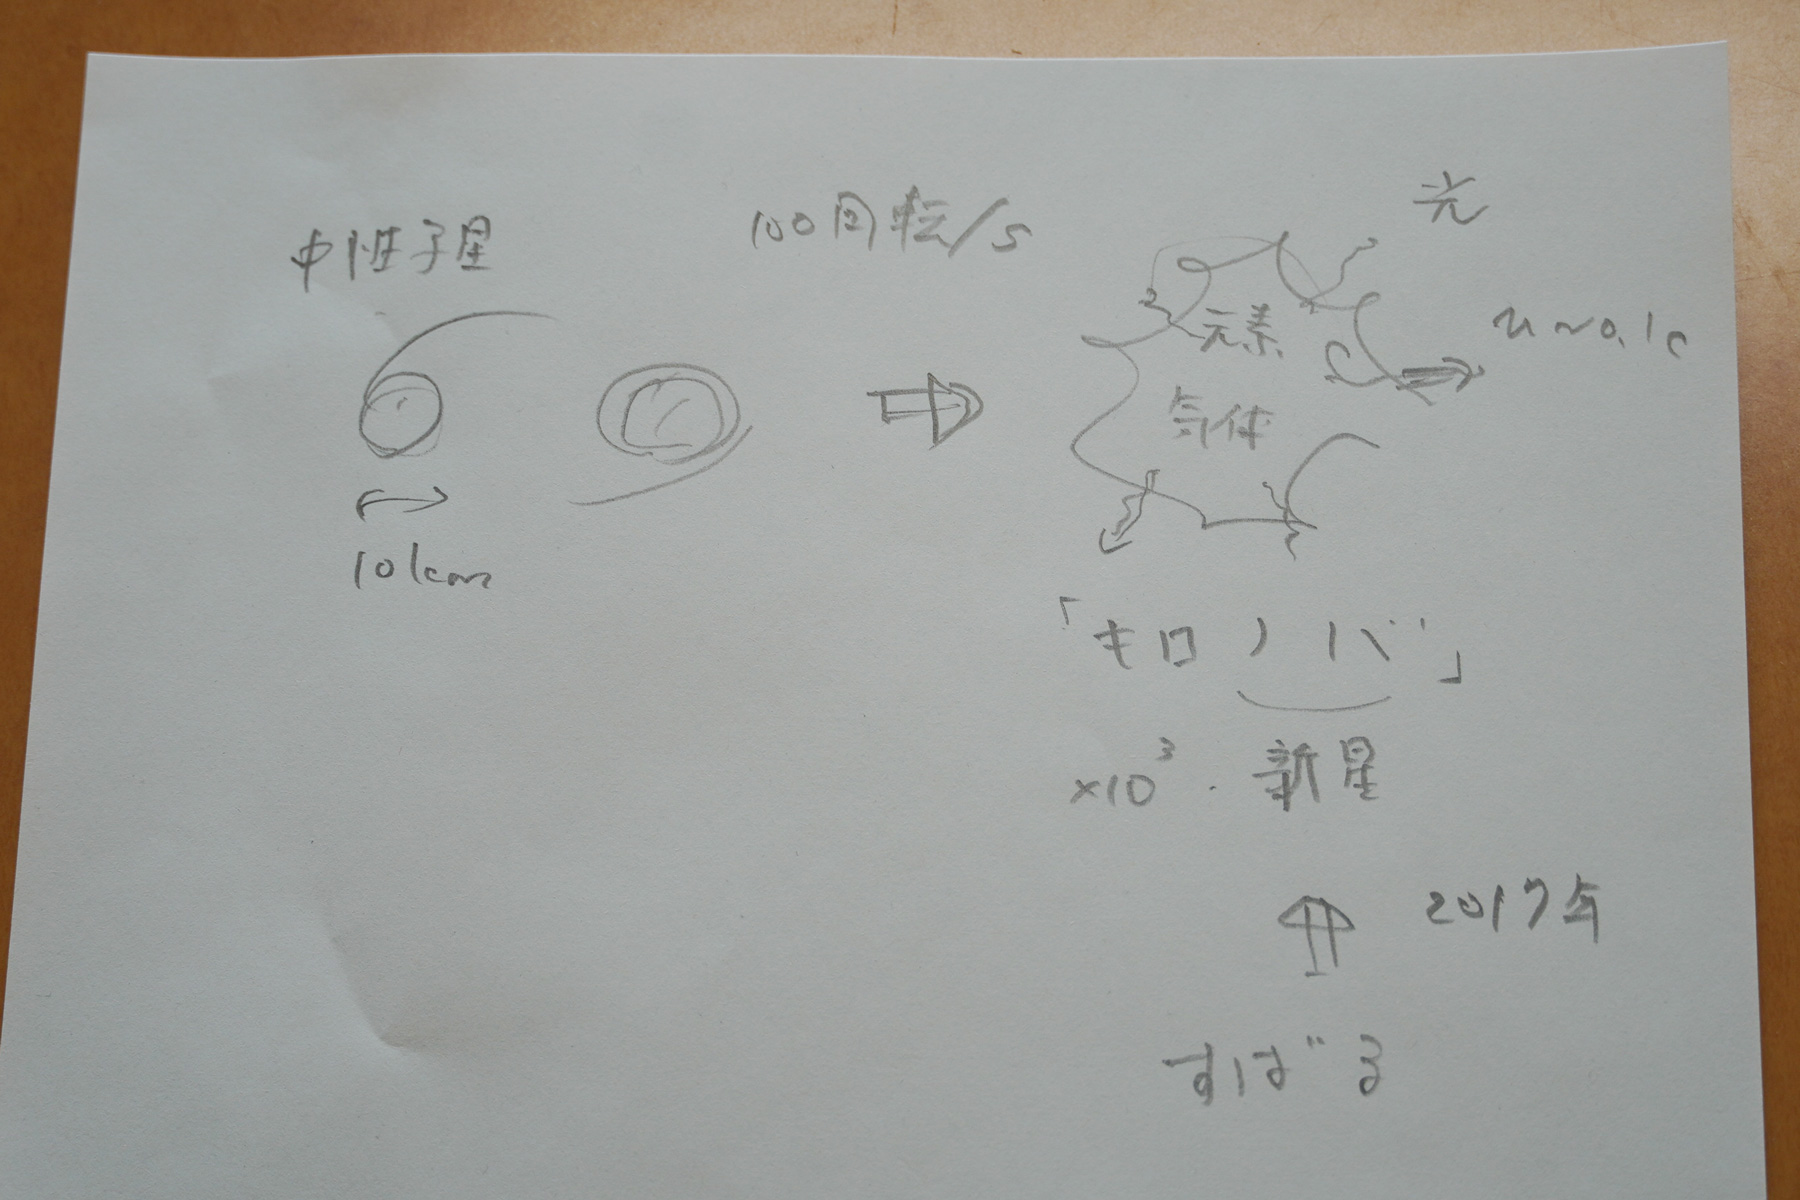 中性子星
100回転/s
光
元素
u~0.1c
気体
10km
「キロノバ」
×10³・新星
2017年
すばる